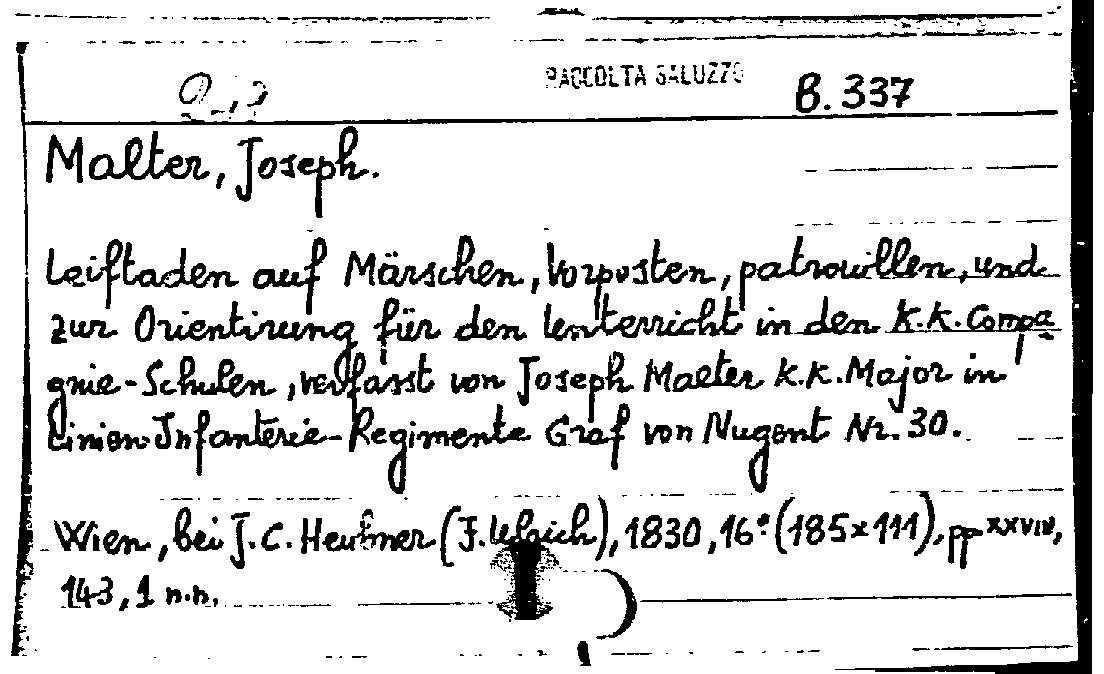 RACCOLTA SALUZZO B. 337
Malter, Joseph.
Leiftaden auf Märschen, Vorposten, patrouillen, und
zur Orientirung für den Unterricht in den K.K. Compa
gnie-Schulen, verfasst von Joseph Malter K.K. Major in
Linien Infanterie-Regimente Graf von Nugent Nr. 30.
Wien, bei J. C. Heubner (F. ), 1830, 16° (185x111), pp XXVIV,
143, 1 n.n.